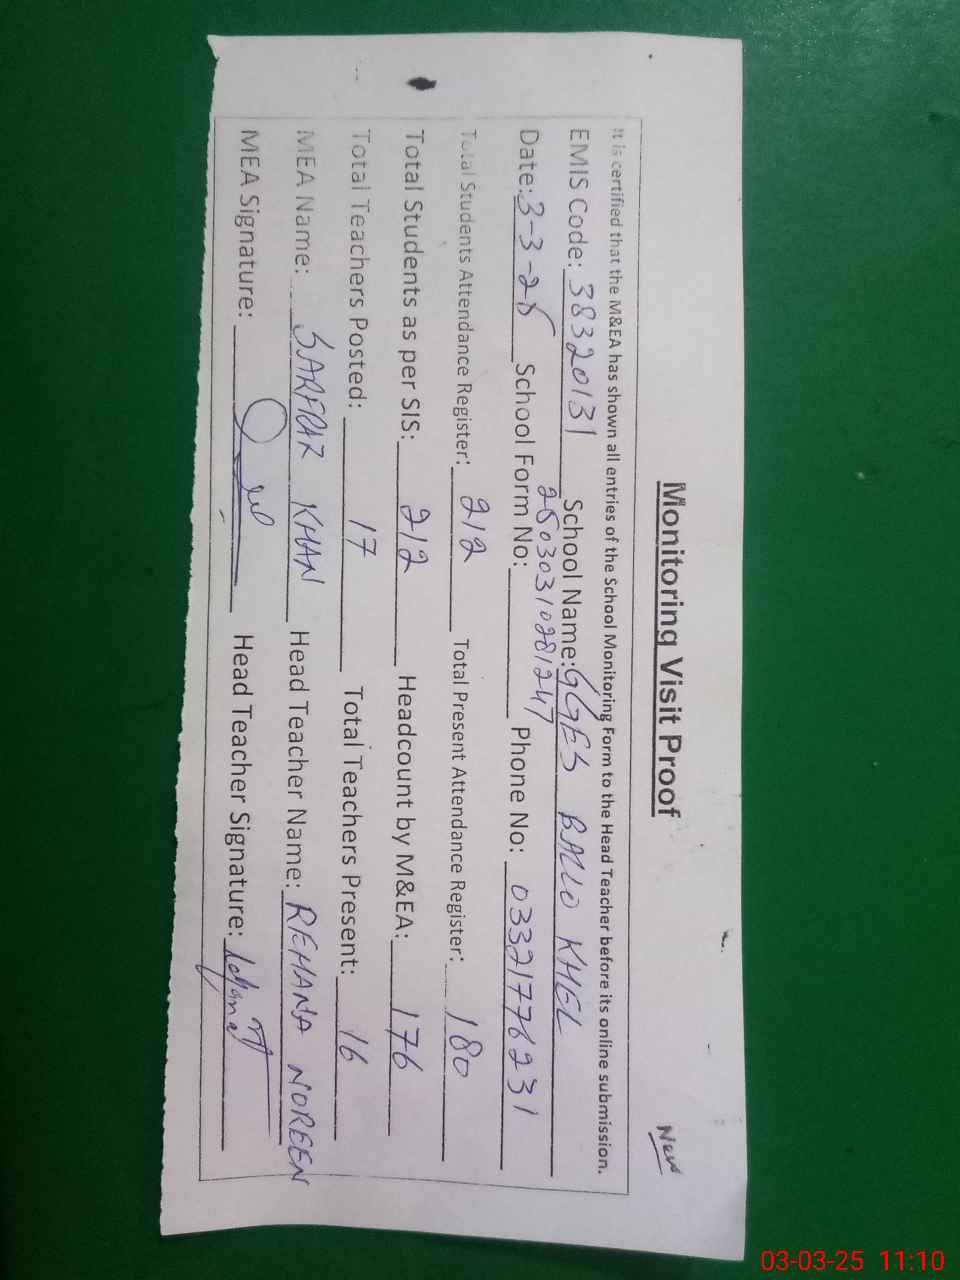 Monitoring Visit Proof
New
It is certified that the M&EA has shown all entries of the School Monitoring Form to the Head Teacher before its online submission.
EMIS Code: 38320131 School Name: GGES BALLO KHEL
Date: 3-3-25 School Form No: 25030310281247 Phone No: 03321776231
Total Students Attendance Register: 212 Total Present Attendance Register: 180
Total Students as per SIS: 212 Headcount by M&EA: 176
Total Teachers Posted: 17 Total Teachers Present: 16
MEA Name: SARFRAZ KHAN Head Teacher Name: REHANA NOREEN
MEA Signature: Head Teacher Signature:
03-03-25 11:10